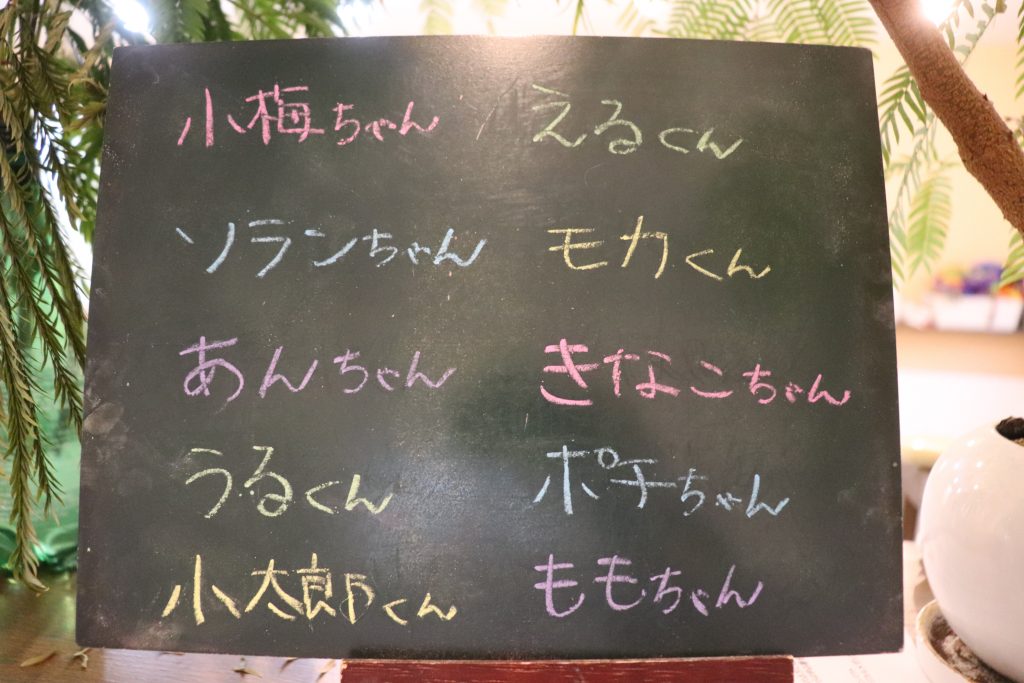 小梅ちゃん
ソランちゃん
あんちゃん
うるくん
小太郎くん
えるくん
モカくん
きなこちゃん
ポチちゃん
ももちゃん